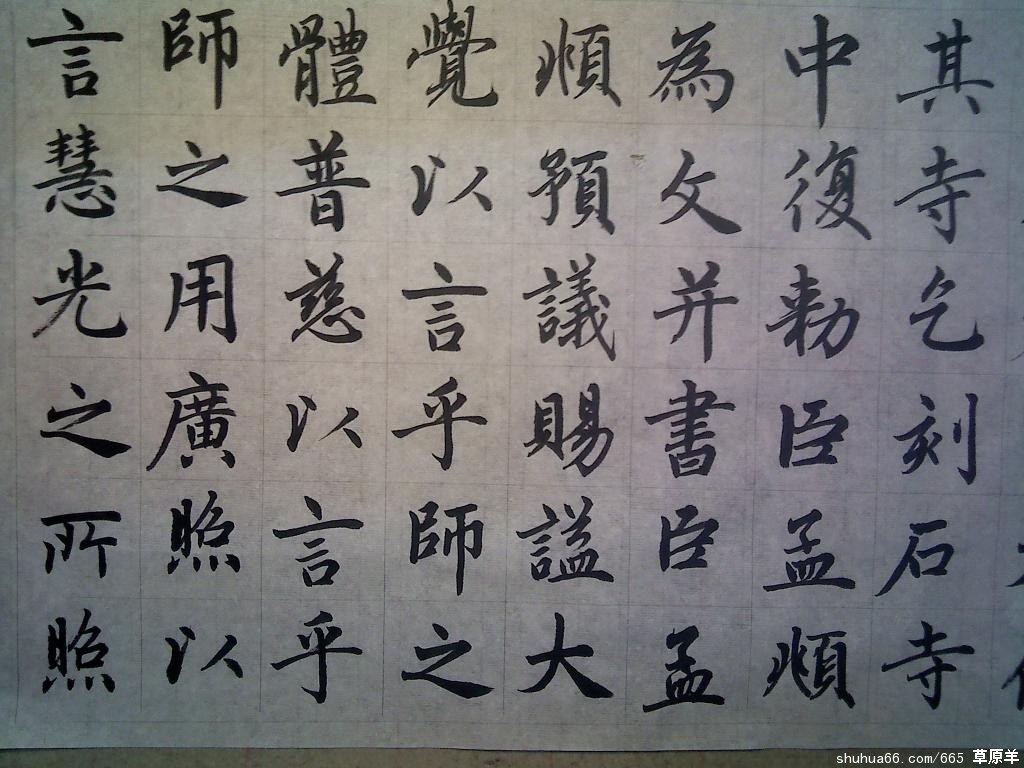 其寺乞刻石寺
中復勅臣孟頫
為文并書臣孟
頫預議賜謚大
覺以言乎師之
體普慈以言乎
師之用廣照以
言慧光之所照
shuhua66.com/665 草原羊